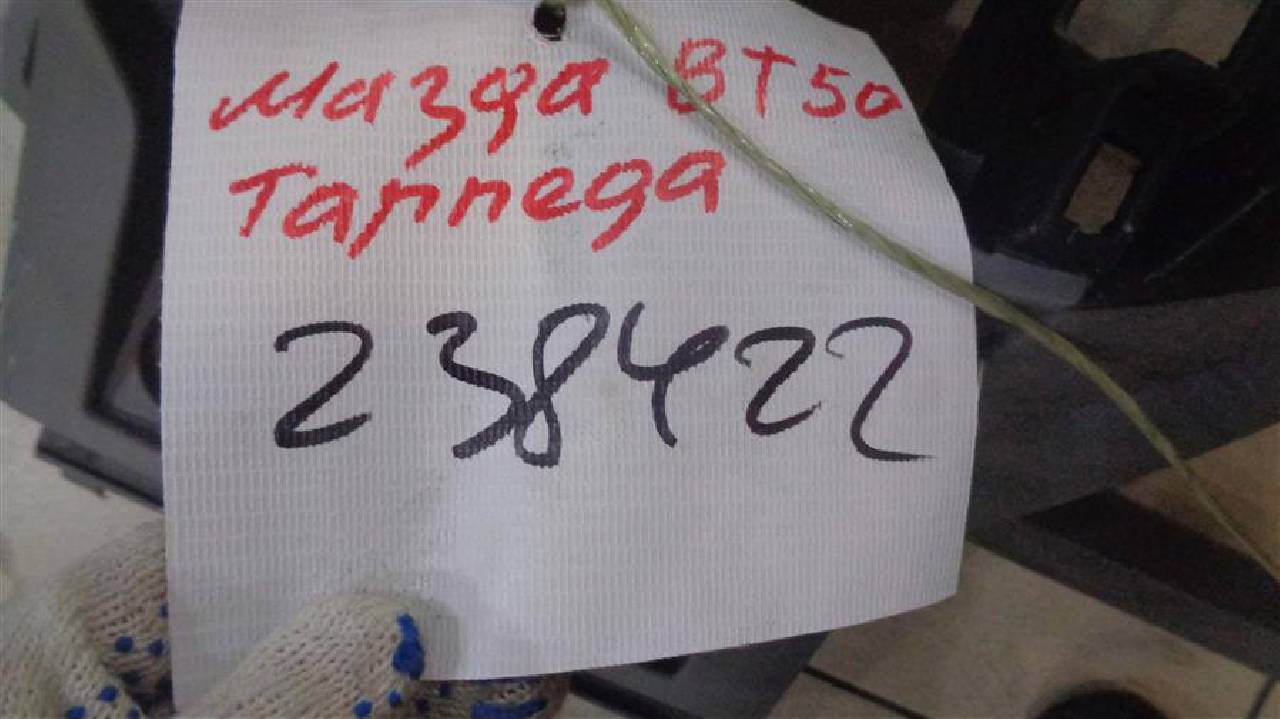 Мазда ВТ50
Тарпеда
238422